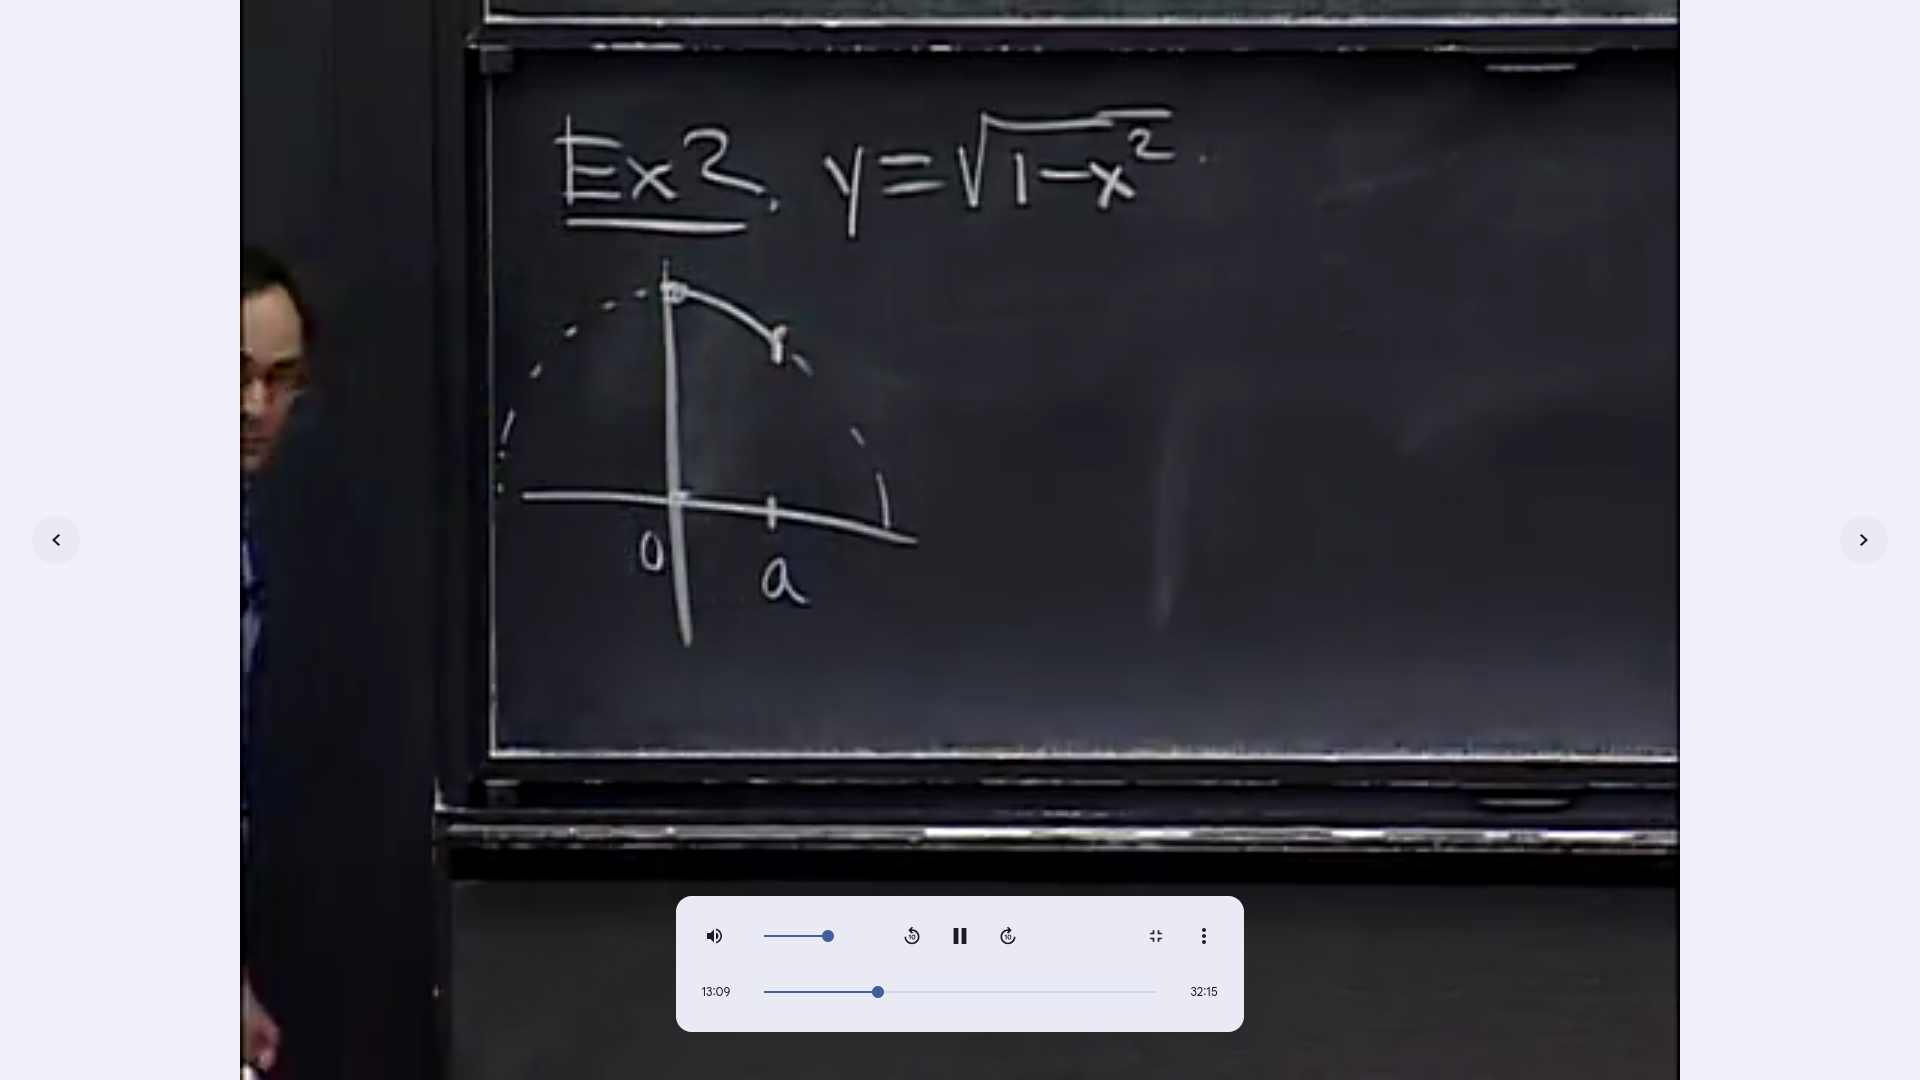 Ex 2. y = √(1-x²)
0
a
10
10
13:09
32:15